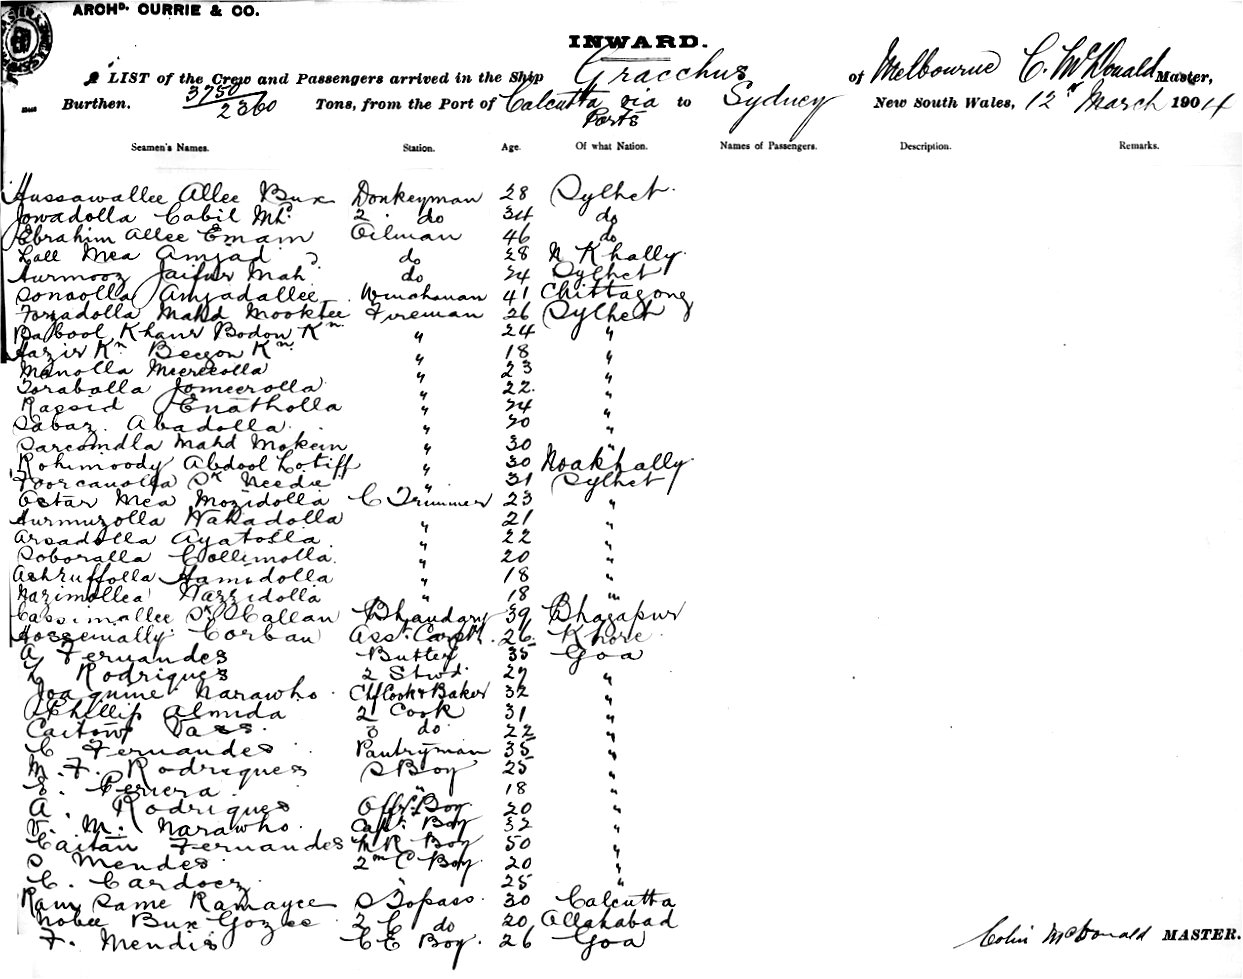 ARCHD. CURRIE & CO.
INWARD.
A LIST of the Crew and Passengers arrived in the Ship Gracchus of Melbourne C. McDonald Master,
Burthen. 3750 / 2360 Tons, from the Port of Calcutta via Ports to Sydney New South Wales, 12th March 1904
Seamen's Names. Station. Age. Of what Nation. Names of Passengers. Description. Remarks.
Hussawallee Allee Bux Donkeyman 28 Sylhet
Jowadolla Cabil Mhd 2 do 34 do
Ebrahim Allee Emam Oilman 46 do
Lall Mea Amjad do 28 N Khally
Hurmooz Jaifur Mah do 24 Sylhet
Sonaolla Amjadallee Winchman 41 Chittagong
Forjadolla Mahd Mooktee Fireman 26 Sylhet
Babool Khan Bodon Kn " 24 "
Hazir Kn Beegon Kn " 18 "
Manolla " 23 "
Toraballa Jomeerolla " 22 "
Rassid Enatholla " 24 "
Sabaz Abadolla " 20 "
Sarcomdla Mahd Mokein " 30 "
Rohimoody Abdool Lotiff " 30 Noakhally
Foorcanolla Sk Needu " 31 Sylhet
Octar Mea Mozidolla C Trimmer 23 "
Hurmuzolla Wahadolla " 21 "
Arsadolla Ayatolla " 22 "
Soboralla Collimolla " 20 "
Ashruffolla Hamidolla " 18 "
Nazimollea Nazzidolla " 18 "
Cassimallee Sk Callan Bhandary 39 Bhagapur
Hossemally Corban Asst Carptr. 26 Khore
A Fernandes Butler 35 Goa
L Rodrigues 2 Stwd 27 "
Joaquine Narawho Chf Cook & Baker 32 "
Phillip Almida 2 Cook 31 "
Caitow Vass 3 do 22 "
C Fernandes Pantryman 35 "
M. F. Rodrigues S Boy 25 "
E. Periera " 18 "
A. Rodrigues Offrs Boy 20 "
V. M. Narawho Capt. Boy 32 "
Caitan Fernandes M R Boy 50 "
S Mendes 2nd C Boy 20 "
C. Cardocz " 25 "
Ram Same Ramayee S Topass 30 Calcutta
Nobee Bux Gozee 2 C do 20 Allahabad
F. Mendis C E Boy 26 Goa
Colin McDonald MASTER.